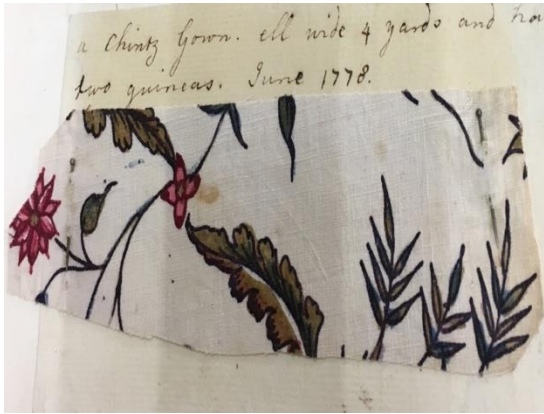 a Chintz Gown. ell wide 4 yards and
two guineas. June 1778.